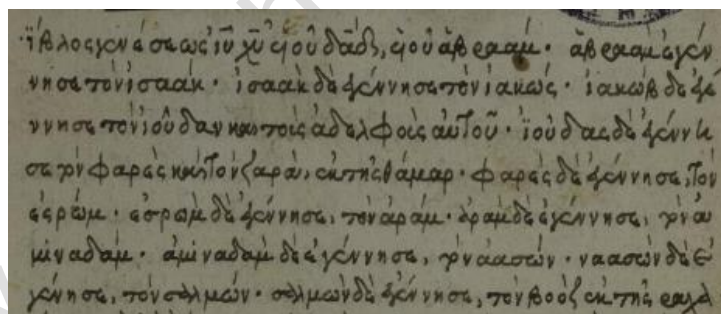 ἴβλος γενέσεως ἰῦ χῦ ὑοῦ δαδ, ὑοῦ ἀβραάμ · ἀβραάμ ἐγέν
νησε τὸν ἰσαάκ · ἰσαάκ δὲ ἐγέννησε τὸν ἰακώβ · ἰακώβ δὲ ἐγέ
ννησε τὸν ἰούδαν καὶ τοὺς ἀδελφοὺς αὐτοῦ · ἰούδας δὲ ἐγέννη
σε τὸν φαρὲς καὶ τὸν ζαρὰ, ἐκ τῆς θάμαρ · φαρὲς δὲ ἐγέννησε, τὸν
ἐσρώμ · ἐσρώμ δὲ ἐγέννησε, τὸν ἀράμ · ἀράμ δὲ ἐγέννησε, τὸν ἀ
μιναδάμ · ἀμιναδάμ δὲ ἐγέννησε, τὸν ναασών · ναασών δὲ ἐ
γέννησε, τὸν σαλμών · σαλμών δὲ ἐγέννησε, τὸν βοὸζ ἐκ τῆς ραχὰ